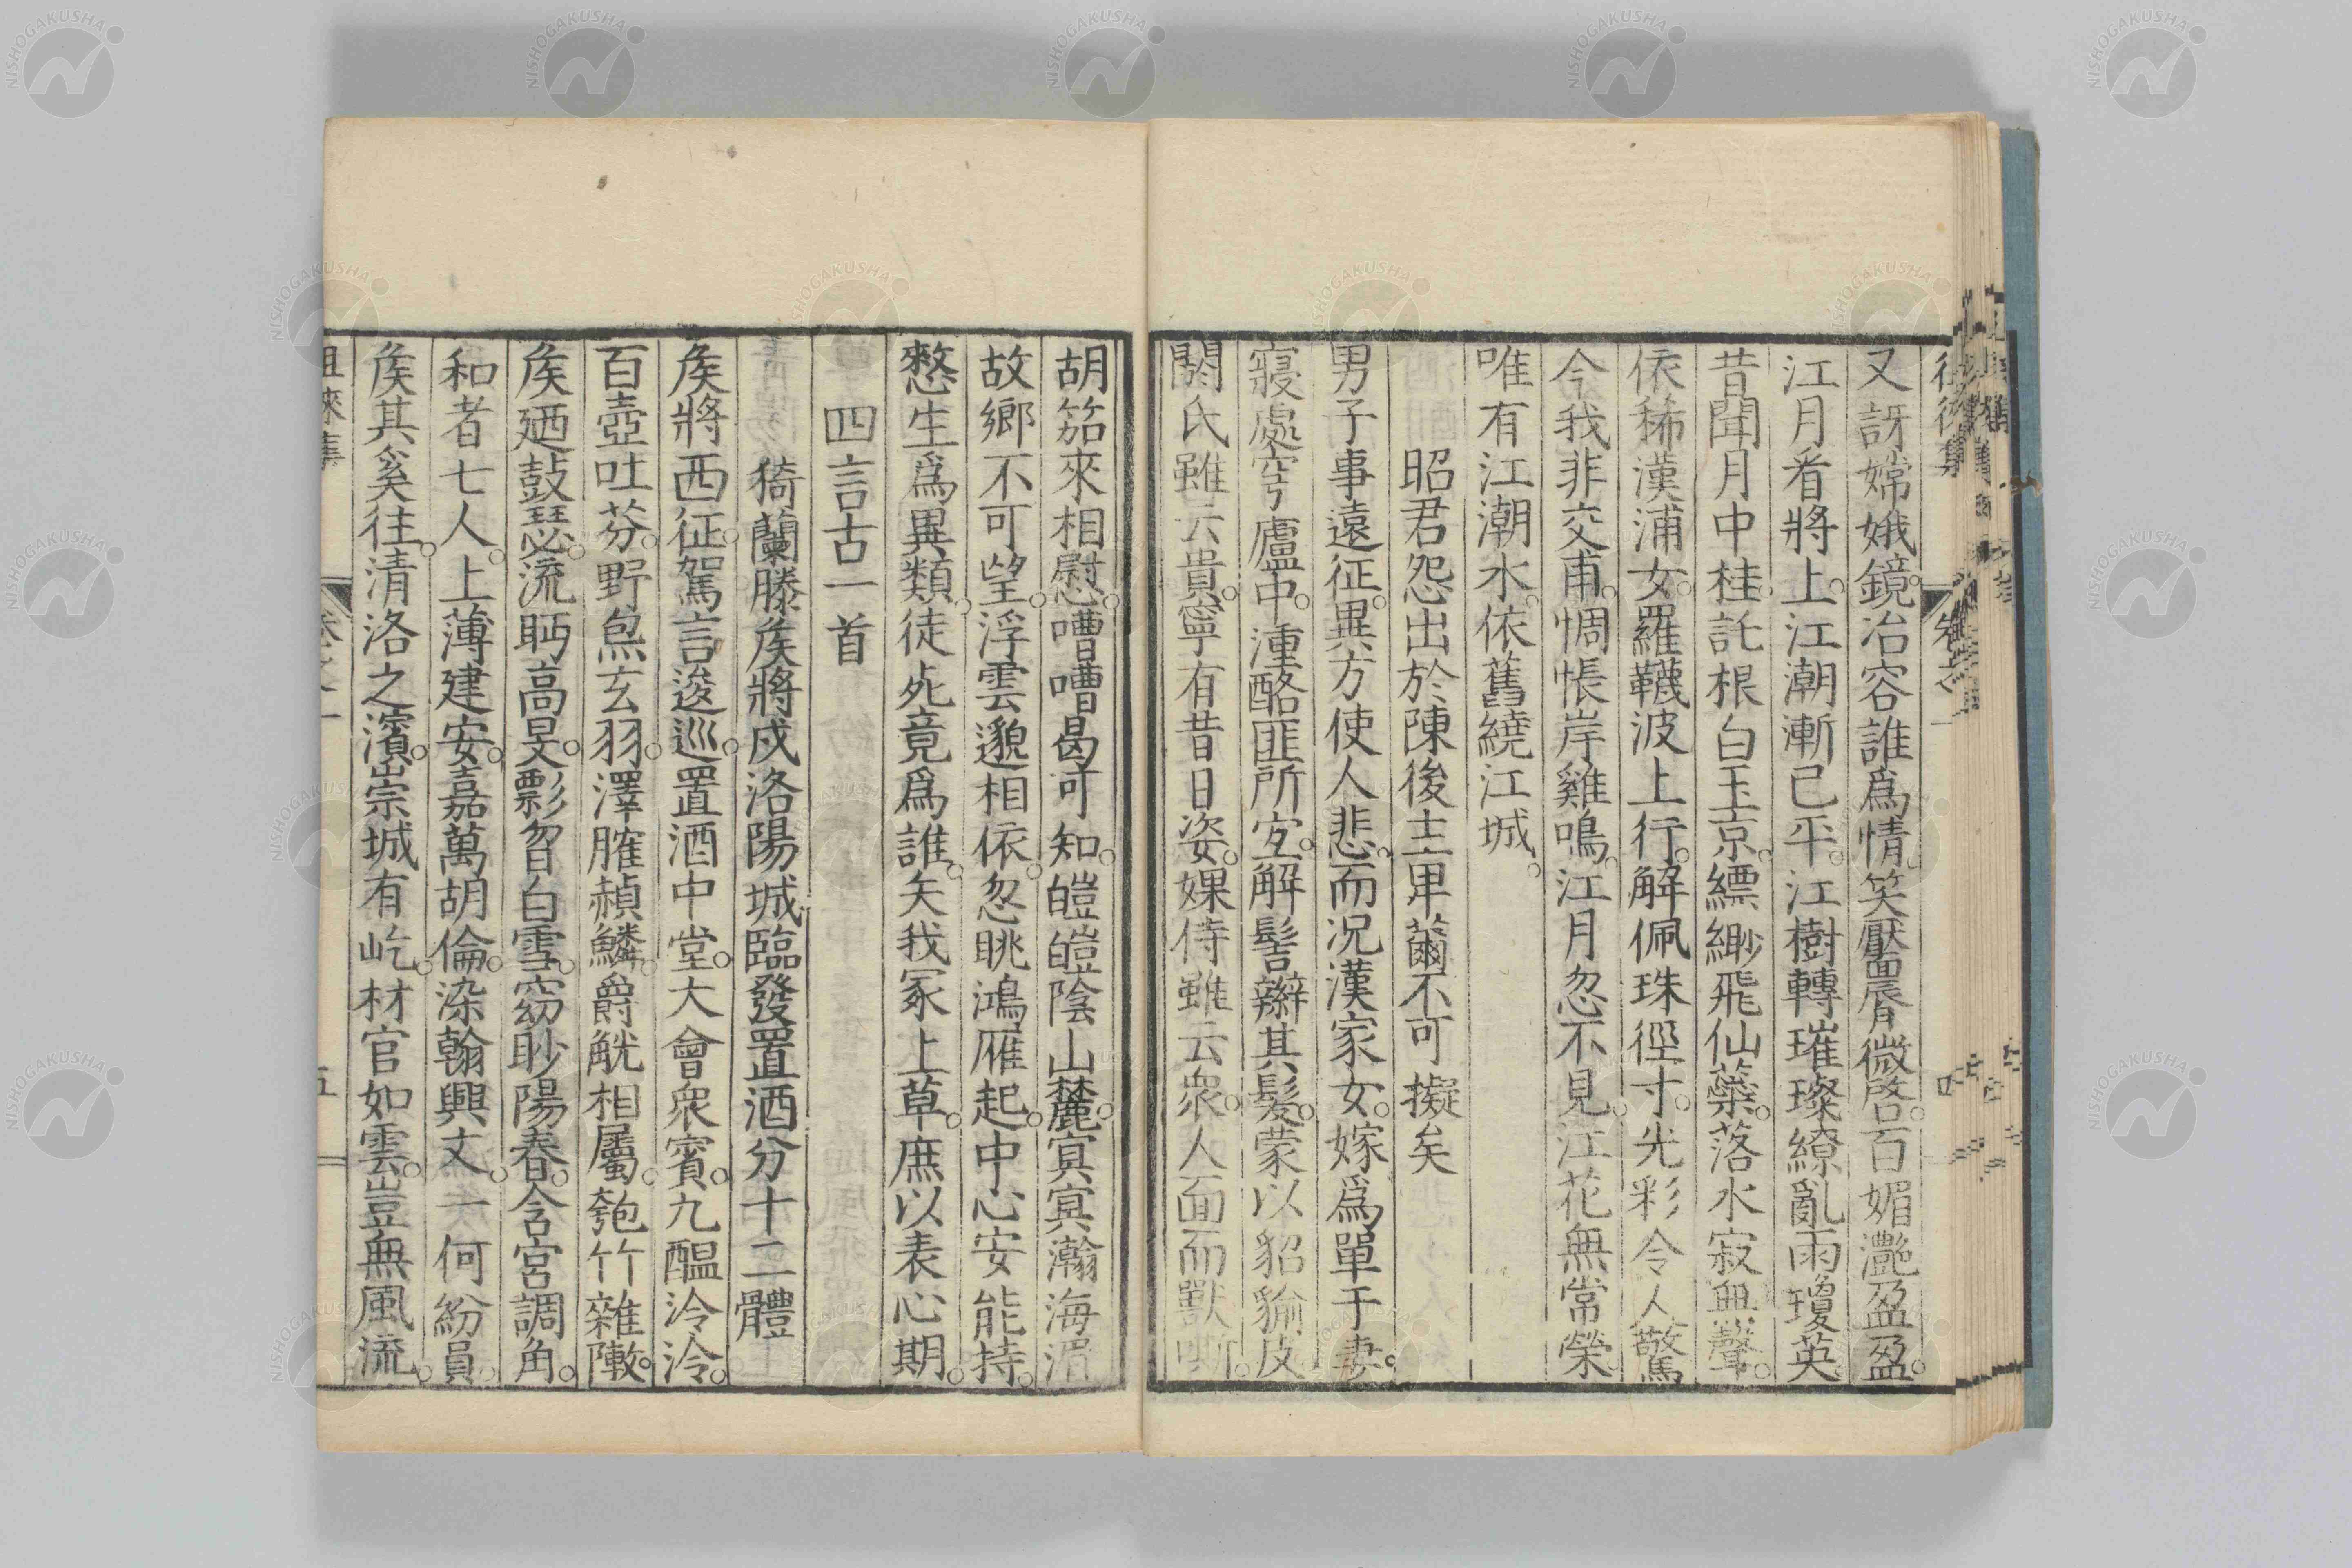 又訝嫦娥鏡。冶容誰爲情。笑靨脣微啓。百媚灔盈盈。
江月看將上。江潮漸已平。江樹轉璀璨。繚亂雨瓊英。
昔聞月中桂。託根白玉京。縹緲飛仙藥。落水寂無聲。
依稀漢浦女。羅韈波上行。解佩珠徑寸。光彩令人驚
今我非交甫。惆悵岸雞鳴。江月忽不見。江花無常榮。
唯有江潮水。依舊繞江城。
昭君怨出於陳後主卑薾不可擬矣
男子事遠征。異方使人悲。而況漢家女。嫁爲單于妻。
寢處穹廬中。湩酪匪所宜。解髻辮其髮。蒙以貂貐皮
閼氏雖云貴。寧有昔日姿。婐侍雖云衆。人面而獸嘶。
胡笳來相慰。嘈嘈曷可知。皚皚陰山麓。寞寞瀚海湄
故鄉不可望。浮雲邈相依。忽眺鴻雁起。中心安能持。
憖生爲異類。徒死竟爲誰。矢我冢上草。庶以表心期。
四言古一首
猗蘭滕侯將戍洛陽城臨發置酒分十二體
侯將西征。駕言逡巡。置酒中堂。大會衆賓。九醞泠泠。
百壺吐芬。野炰玄羽。澤臛赬鱗。爵觥相屬。匏竹雜陳。
侯廼鼓瑟。流眄高旻。飄曶白雪。窈眇陽春。含宮調角。
和者七人。上薄建安。嘉萬胡倫。染翰興文。一何紛員。
侯其奚往。清洛之濱。崇城有屹。材官如雲。豈無風流。
徂徠集
卷之一
五